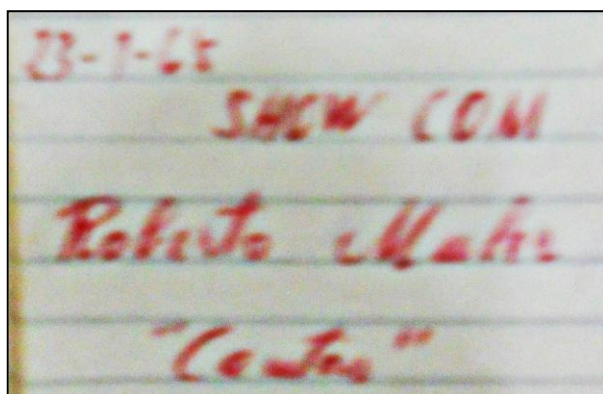 23-1-65
SHOW COM
Roberto
"Cantor"